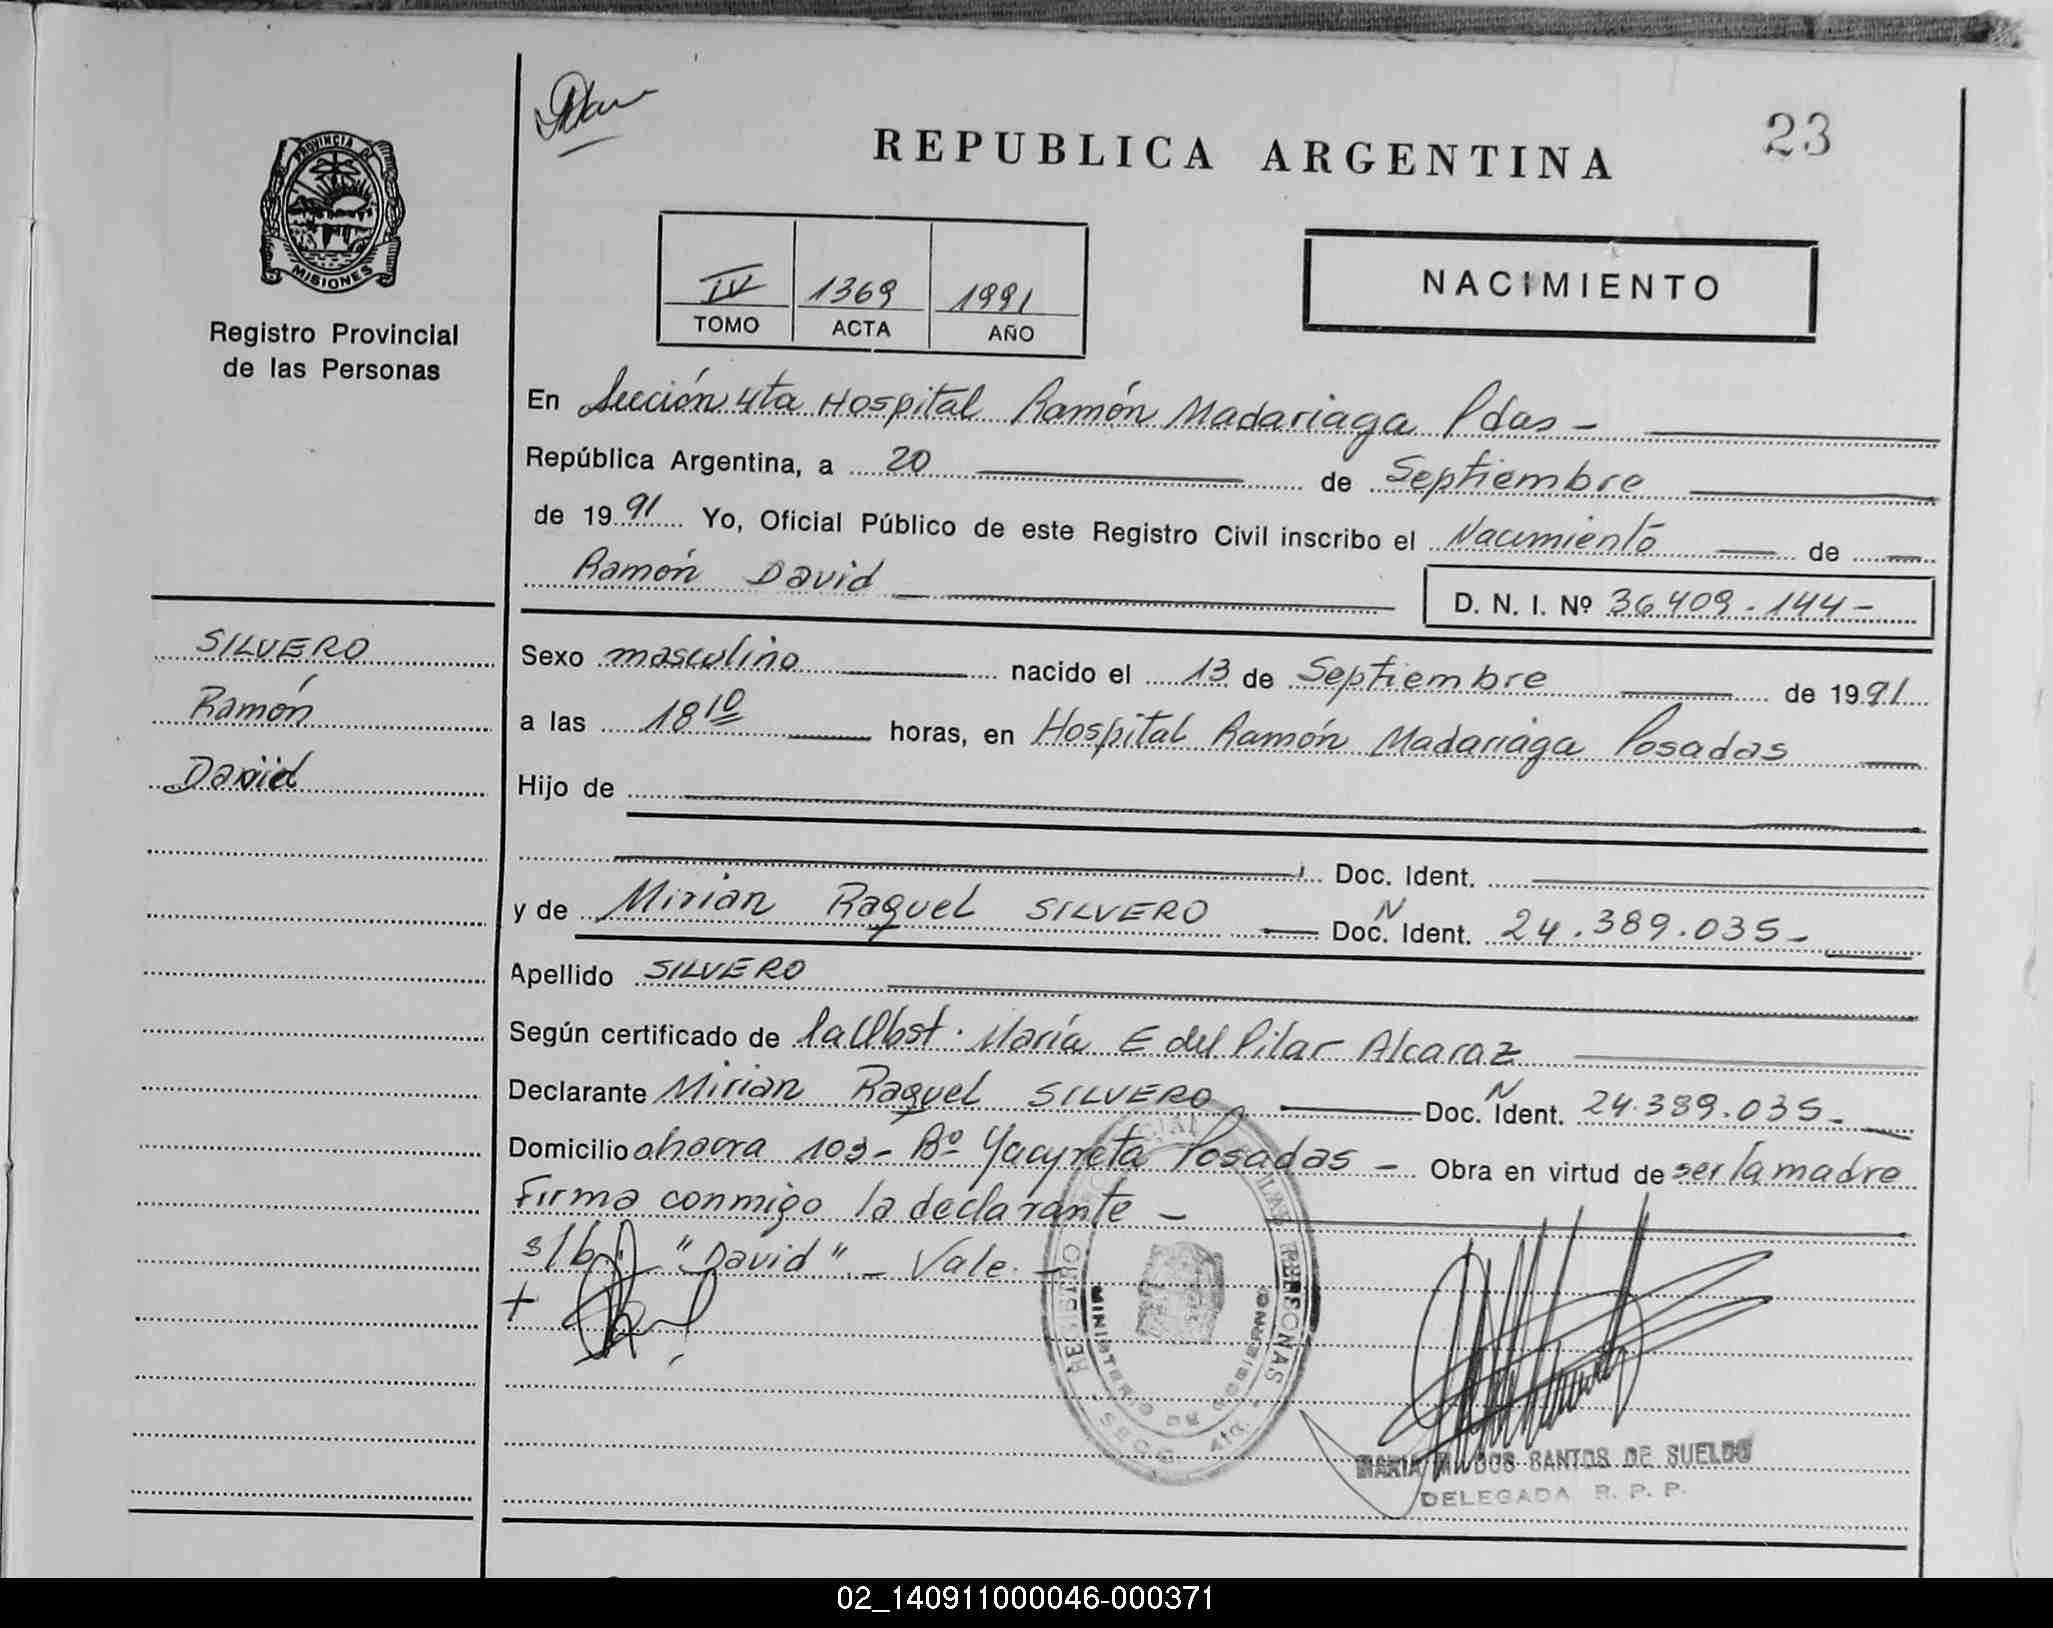 23
REPUBLICA ARGENTINA
PROVINCIA DE
MISIONES
Registro Provincial
de las Personas
IV 1369 1991
TOMO ACTA AÑO
NACIMIENTO
En Sección 4ta Hospital Ramón Madariaga Pdas -
República Argentina, a 20 de Septiembre
de 1991 Yo, Oficial Público de este Registro Civil inscribo el Nacimiento de
Ramón David
D. N. I. Nº 36.409.144-
SILVERO
Ramón
David
Sexo masculino nacido el 13 de Septiembre de 1991
a las 18 10 horas, en Hospital Ramón Madariaga Posadas
Hijo de
Doc. Ident.
y de Mirian Raquel SILVERO Doc. N Ident. 24.389.035-
Apellido SILVERO
Según certificado de la Obst. María E del Pilar Alcaraz
Declarante Mirian Raquel SILVERO Doc. N Ident. 24.389.035-
Domicilio chacra 103- Bº Yacyreta Posadas - Obra en virtud de ser la madre
Firma conmigo la declarante -
s/b "David" - Vale. -
REGISTRO PERSONAS
MINISTERIO DE GOBIERNO
DOS SANTOS DE SUELDO
DELEGADA R. P. P.
02_140911000046-000371